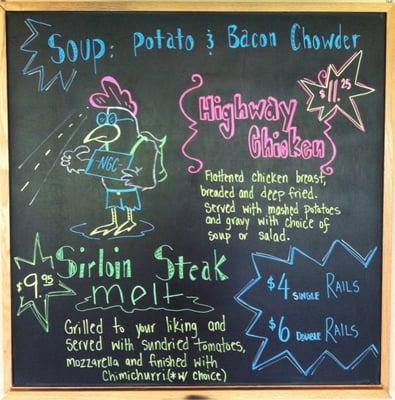 Soup: Potato & Bacon Chowder
$11.25
Highway
Chicken
NGC
Flattened chicken breast,
breaded and deep fried.
Served with mashed potatoes
and gravy with choice of
soup or salad.
Sirloin Steak
melt
$9.95
Grilled to your liking and
served with sundried tomatoes,
mozzarella and finished with
Chimichurri (*w/ choice)
$4 SINGLE RAILS
$6 DOUBLE RAILS